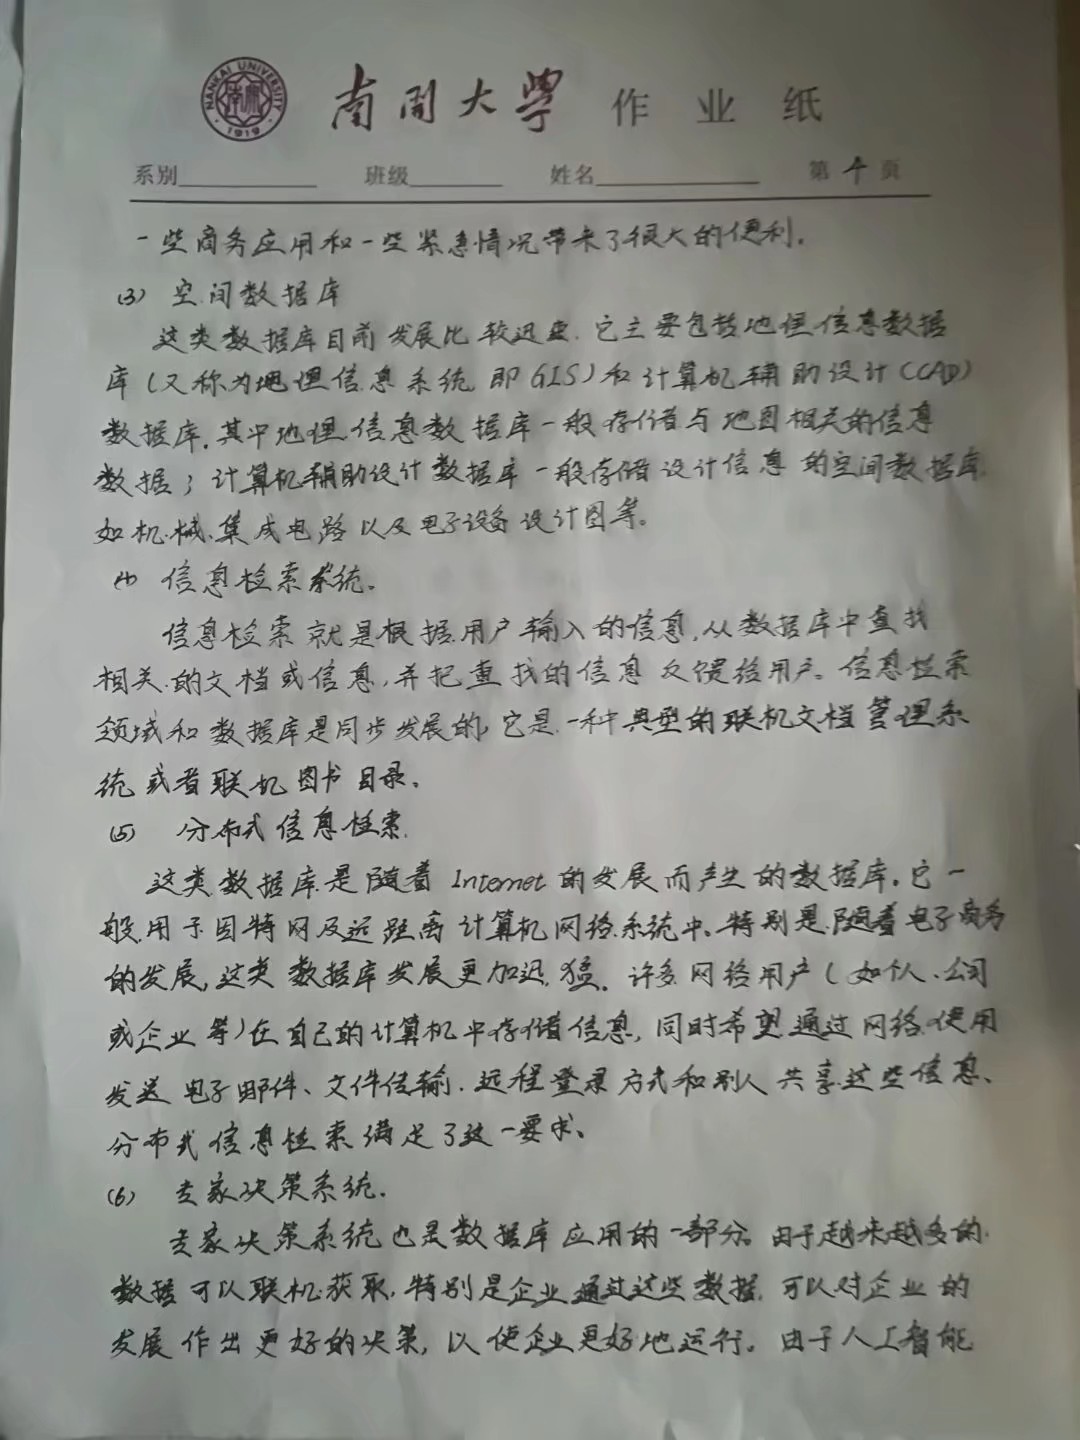 NANKAI UNIVERSITY
1919
南开大学 作业纸
系别 班级 姓名 第 4 页
一些商务应用和一些紧急情况带来了很大的便利。
(3) 空间数据库
这类数据库目前发展比较迅速.它主要包括地理信息数据
库(又称为地理信息系统 即GIS)和计算机辅助设计(CAD)
数据库.其中地理信息数据库一般存储与地图相关的信息
数据;计算机辅助设计数据库一般存储设计信息的空间数据库
如机械、集成电路以及电子设备设计图等。
(4) 信息检索系统.
信息检索就是根据用户输入的信息,从数据库中查找
相关的文档或信息,并把查找的信息反馈给用户。信息检索
领域和数据库是同步发展的,它是一种典型的联机文档管理系
统或者联机图书目录.
(5) 分布式信息检索.
这类数据库是随着Internet的发展而产生的数据库.它一
般用于因特网及远距离计算机网络系统中.特别是随着电子商务
的发展,这类数据库发展更加迅猛.许多网络用户(如个人、公司
或企业等)在自己的计算机中存储信息,同时希望通过网络使用
发送电子邮件、文件传输.远程登录方式和别人共享这些信息、
分布式信息检索满足了这一要求、
(6) 专家决策系统.
专家决策系统也是数据库应用的一部分。由于越来越多的
数据可以联机获取,特别是企业通过这些数据.可以对企业的
发展作出更好的决策,以使企业更好地运行。由于人工智能